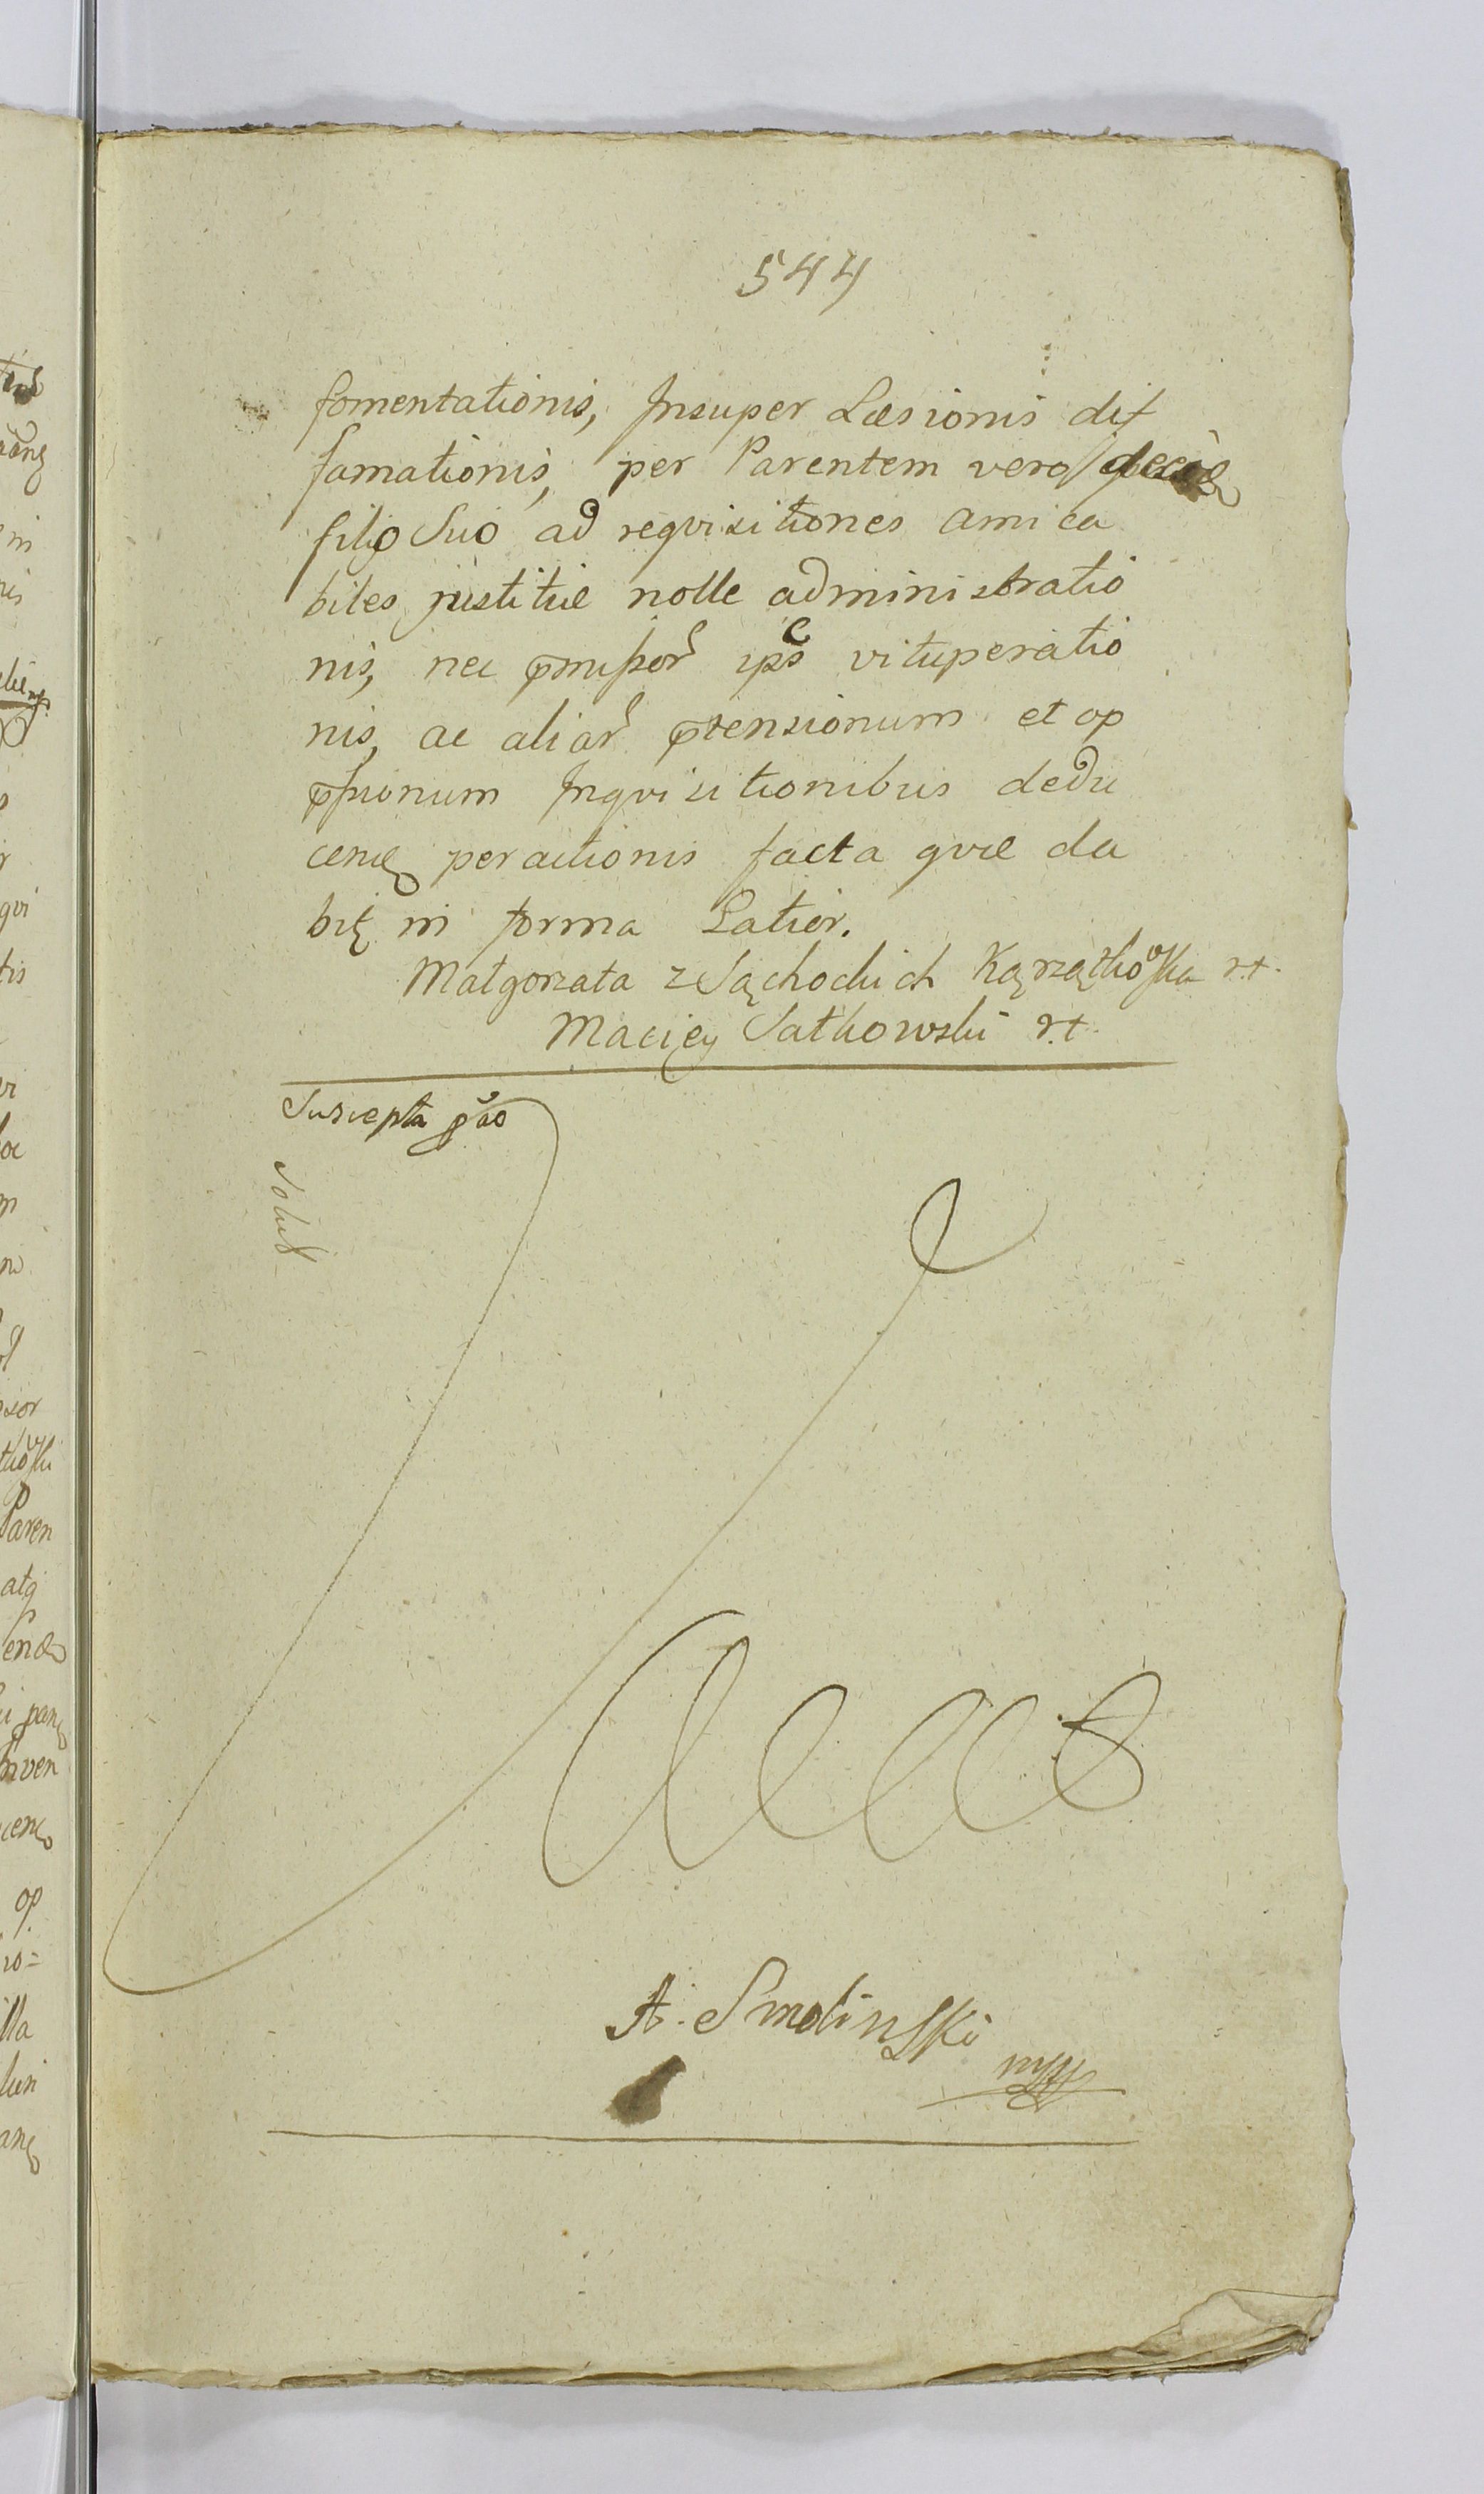 544
fomentationis, Insuper Læsionis dif
famationis, per Parentem vero
filio Suo ad reqvisitiones amica
biles justitiæ nolle administratio
nis, nec ips vituperatio
nis, ac aliar ptensionum et op
pssionum Inqvisitionibus dedu
cen peractionis facta qvæ da
bit in forma Latior.
Małgorzata z Sąchockich Karzątkowska r.t.
Maciey Satkowski r.t.
Suscepta pao
Solut
A. Smolinski
mpp